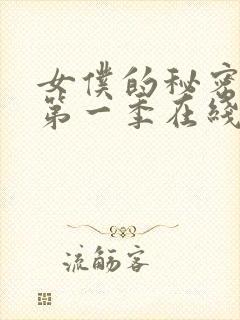 女僕的秘密
第一季在綫
流觴客